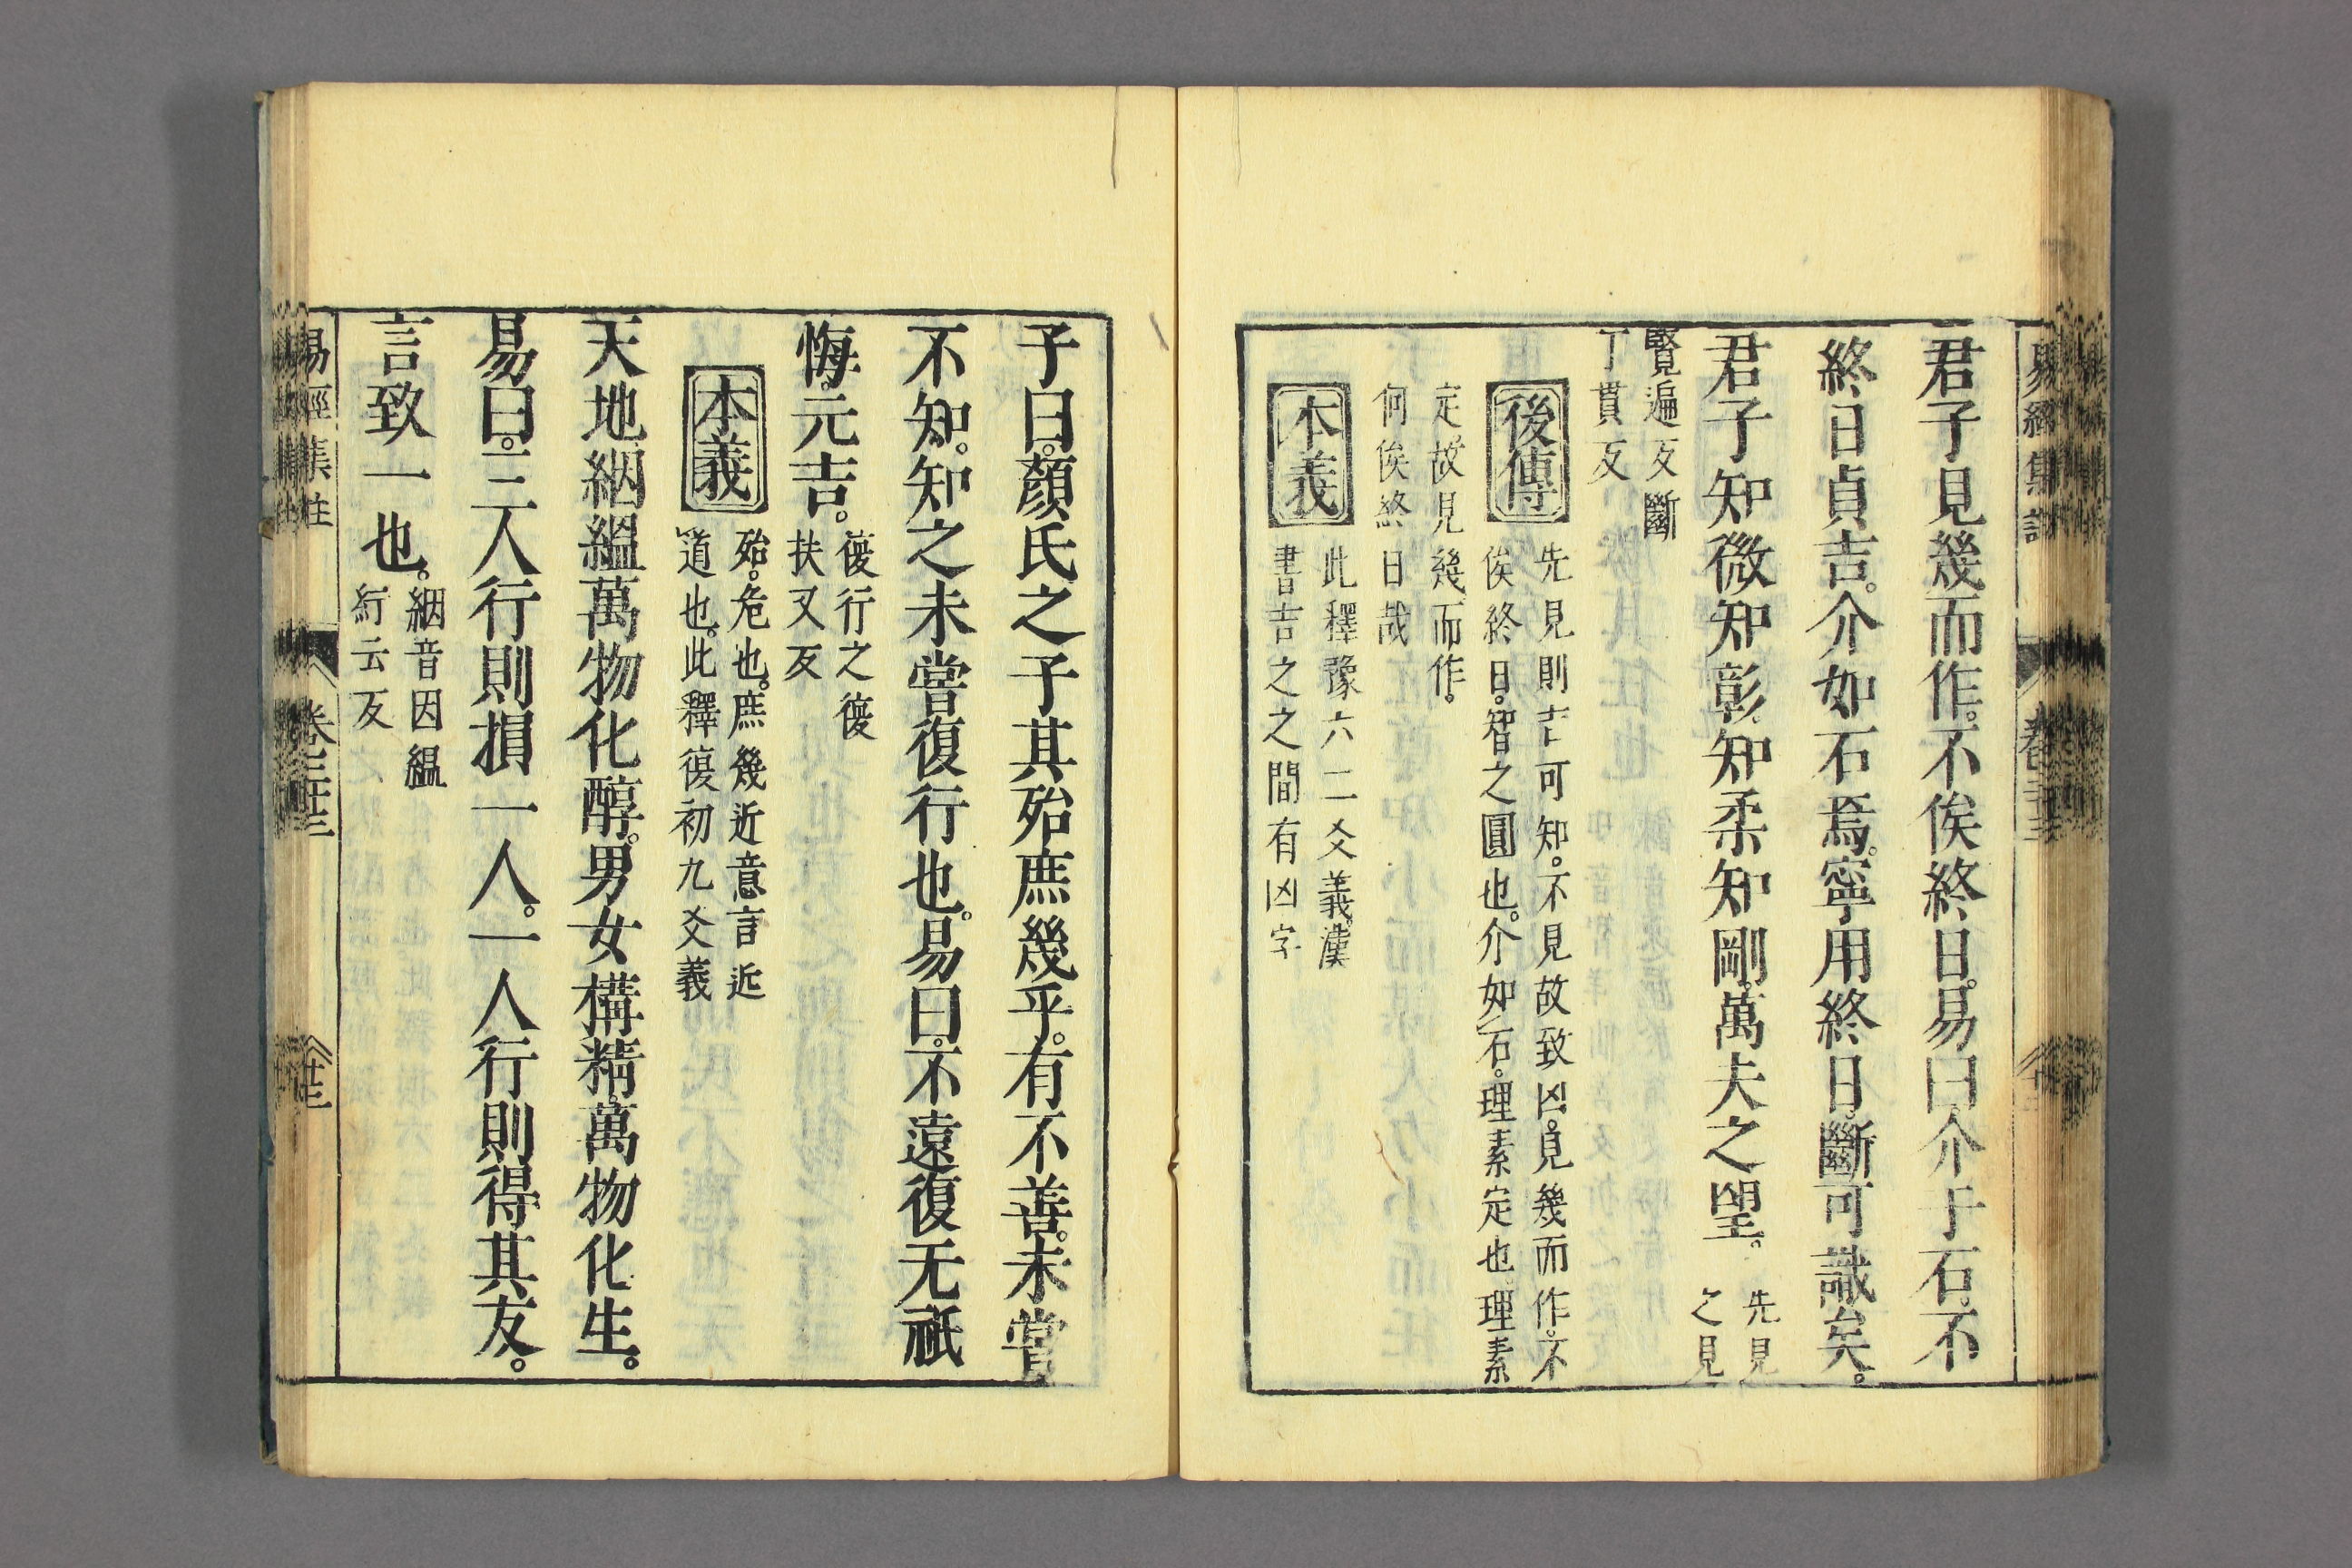 君子見幾而作。不俟終日。易曰介于石。不
終日貞吉。介如石焉。寧用終日。斷可識矣。
君子知微知彰。知柔知剛。萬夫之望。先見之見
賢遍反斷
丁貫反
後傳
先見則吉可知。不見故致凶。見幾而作。不
俟終日。智之圓也。介如石。理素定也。理素
定。故見幾而作。
何俟終日哉
本義
此釋豫六二爻義。漢
書吉之之間有凶字
子曰。顏氏之子其殆庶幾乎。有不善。未嘗
不知。知之未嘗復行也。易曰。不遠復无祗
悔。元吉。
復行之復
扶又反
本義
殆。危也。庶幾近意。言近
道也。此釋復初九爻義
天地絪縕萬物化醇。男女構精。萬物化生。
易曰。三人行則損一人。一人行則得其友。
言致一也。
絪音因縕
紆云反
易經集註
卷二十三